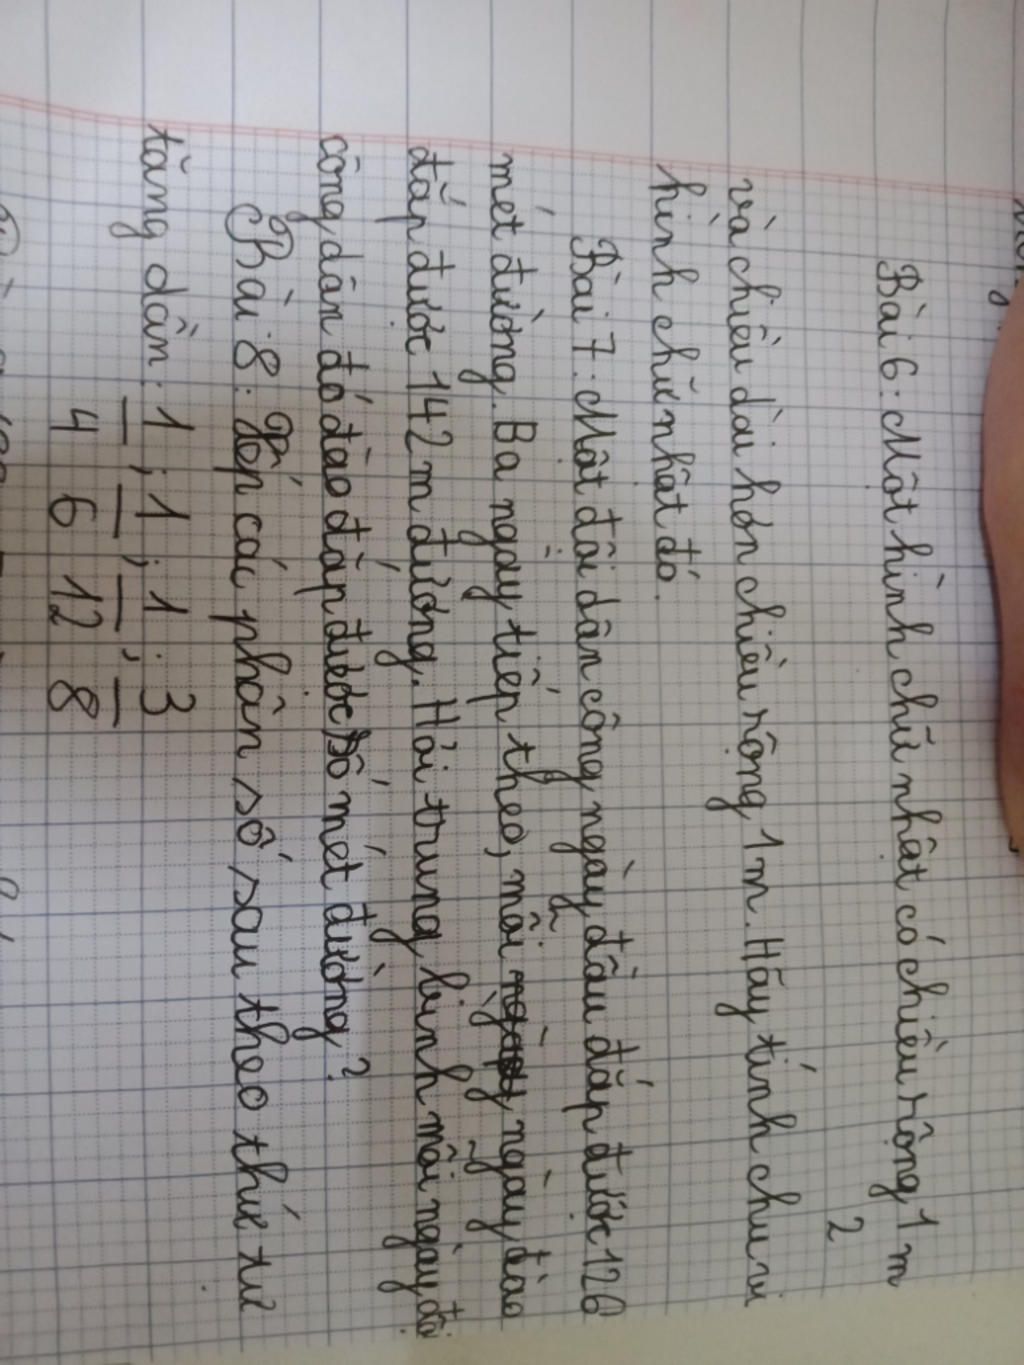 Bài 6: Một hình chữ nhật có chiều rộng 1 m
2
và chiều dài hơn chiều rộng 1 m. Hãy tính chu vi
hình chữ nhật đó.
Bài 7: Một đội dân công ngày đầu đắp được 126
mét đường. Ba ngày tiếp theo, mỗi ngày đào
đắp được 142 m đường. Hỏi trung bình mỗi ngày đội
công dân đó đào đắp được số mét đường?
Bài 8: Xếp các phân số sau theo thứ tự
tăng dần: 1/4; 1/6; 1/12; 3/8